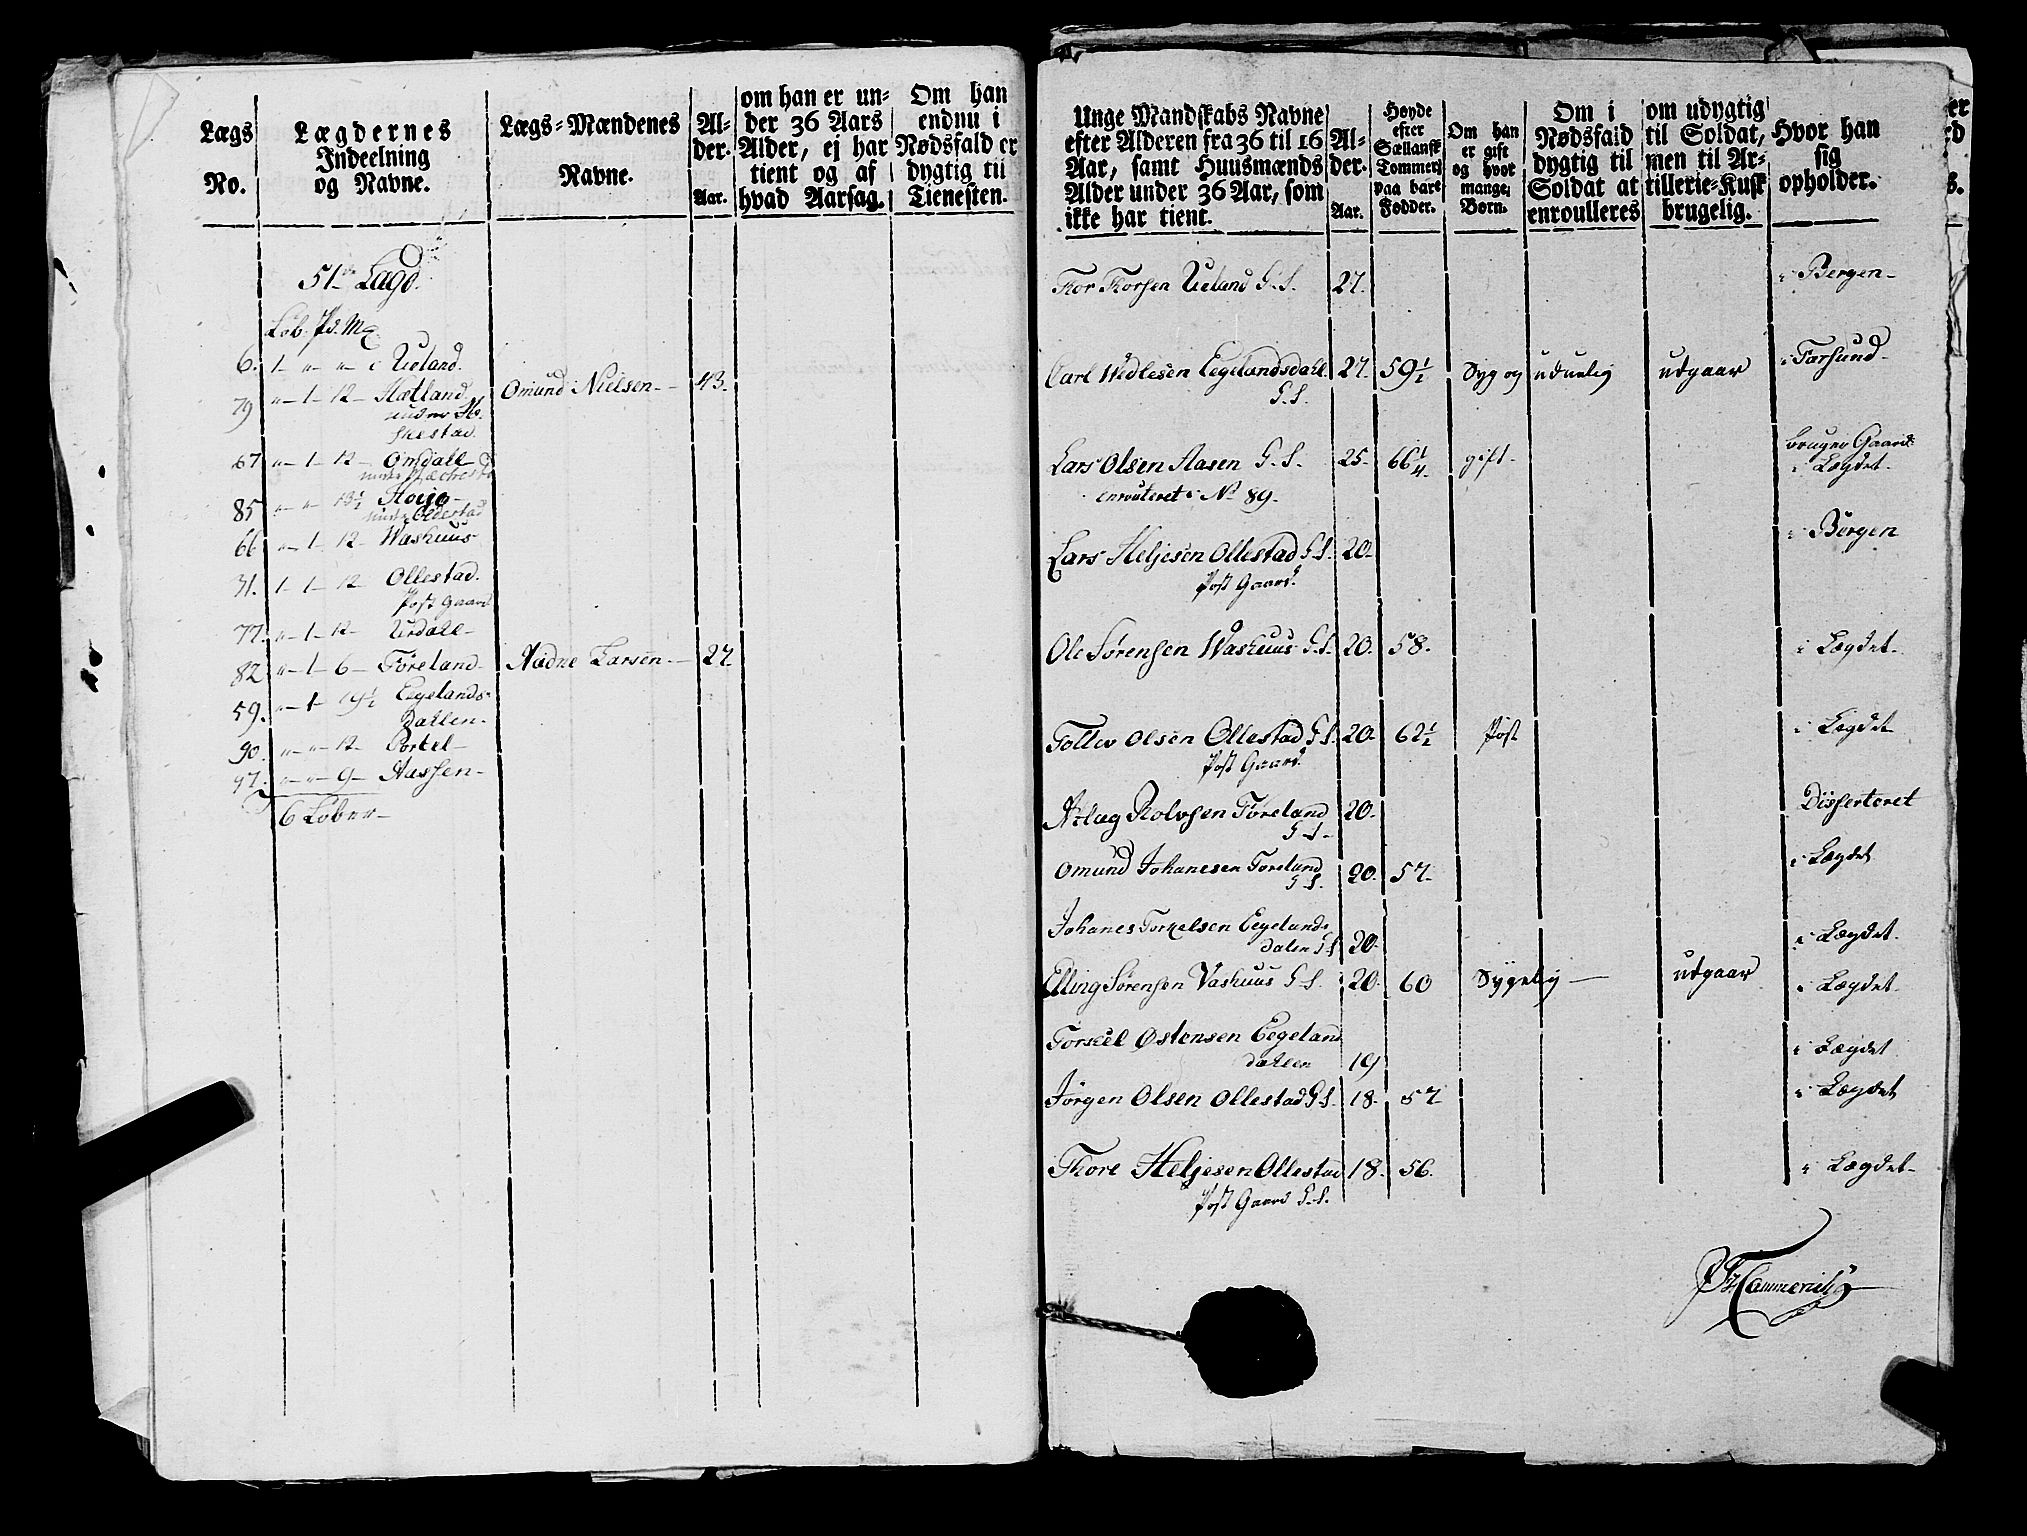 Lægs
No.
Lægdernes
Indeelning
og Navne.
Lægs=Mændenes
Navne.
Al=
der.
Aar.
om han er un=
der 36 Aars
Alder, ej har
tient og af
hvad Aarsag.
Om han
endnu i
Nødsfald er
dygtig til
Tienesten.
51de Lægd.
Löb. Pd. Mg
6. 1 - " - " - Ueland.
79 " - 1 - 12 - Hætland
under
skestad.
Omund Nielsen - 43.
67 " - 1 - 12 - Omdall
85 " - " - 13½ Stoije
under Oldestad
66 " - 1 - 12 - Washuus
31. 1 - 1 - 12 - Ollestad.
Post Gaard
77. " - 1 - 12 - Urdall -
82 " - 1 - 6 - Föreland. Aadne Larsen - 27
59. " - 1 - 19½ Eegelands-
dallen -
90. " - " - 12 - Portel -
97. " - " - 9 - Aassen -
6 Löber -
Unge Mandskabs Navne
efter Alderen fra 36 til 16
Aar, samt Huusmænds
Alder under 36 Aar, som
ikke har tient.
Al=
der.
Aar.
Høyde
efter
Siællansk
Tommer
paa bare
Fødder.
Om han
er gift
og hvor
mange
Børn.
Om i
Nødsfald
dygtig til
Soldat at
enroulleres
om udygtig
til Soldat,
men til Ar=
tillerie=Kusk
brugelig.
Hvor han
sig
opholder.
Thor Thorsen Ueland G. S. 27. i Bergen -
Carl Wedlesen Eegelandsdahl 27. 59½ Syg og uduelig utgaar i Farsund -
G. S.
Lars Olsen Aasen G. S. 25. 66¼ gift - bruger Gaard
i Lægdet.
enrouteret i No 89.
Lars Heljesen Ollestad G S. 20. i Bergen
Post Gaard.
Ole Sörensen Washuus G S. 20. 58. i Lægdet.
Tollev Olsen Ollestad G S. 20. 62½ Post i Legdet
Post Gaard.
Atlag Rolvsen Föreland 20. Dissertoret
G S.
Omund Johanesen Foreland 20. 57. i Lægdet
G S.
Johanes Torkelsen Eegelands-
dalen G S 20. i Lægdet.
Elling Sörensen Vashuus G S. 20. 60 Sygelig - utgaar i Lægdet.
Torkel Østensen Eegeland
dallen 19 i Lægdet
Jörgen Olsen Ollestad G S. 18. 57 i Lægdet
Thore Heljesen Ollestad 18. 56. i Lægdet -
Post Gaard G. S.